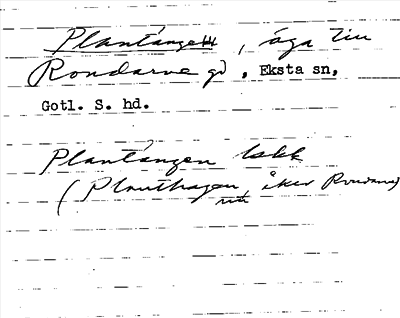 Plantänget, äga till
Rondarve gd, Eksta sn,
Gotl. S. hd.
Plantängen
(Planthagen, åker Rondarve)